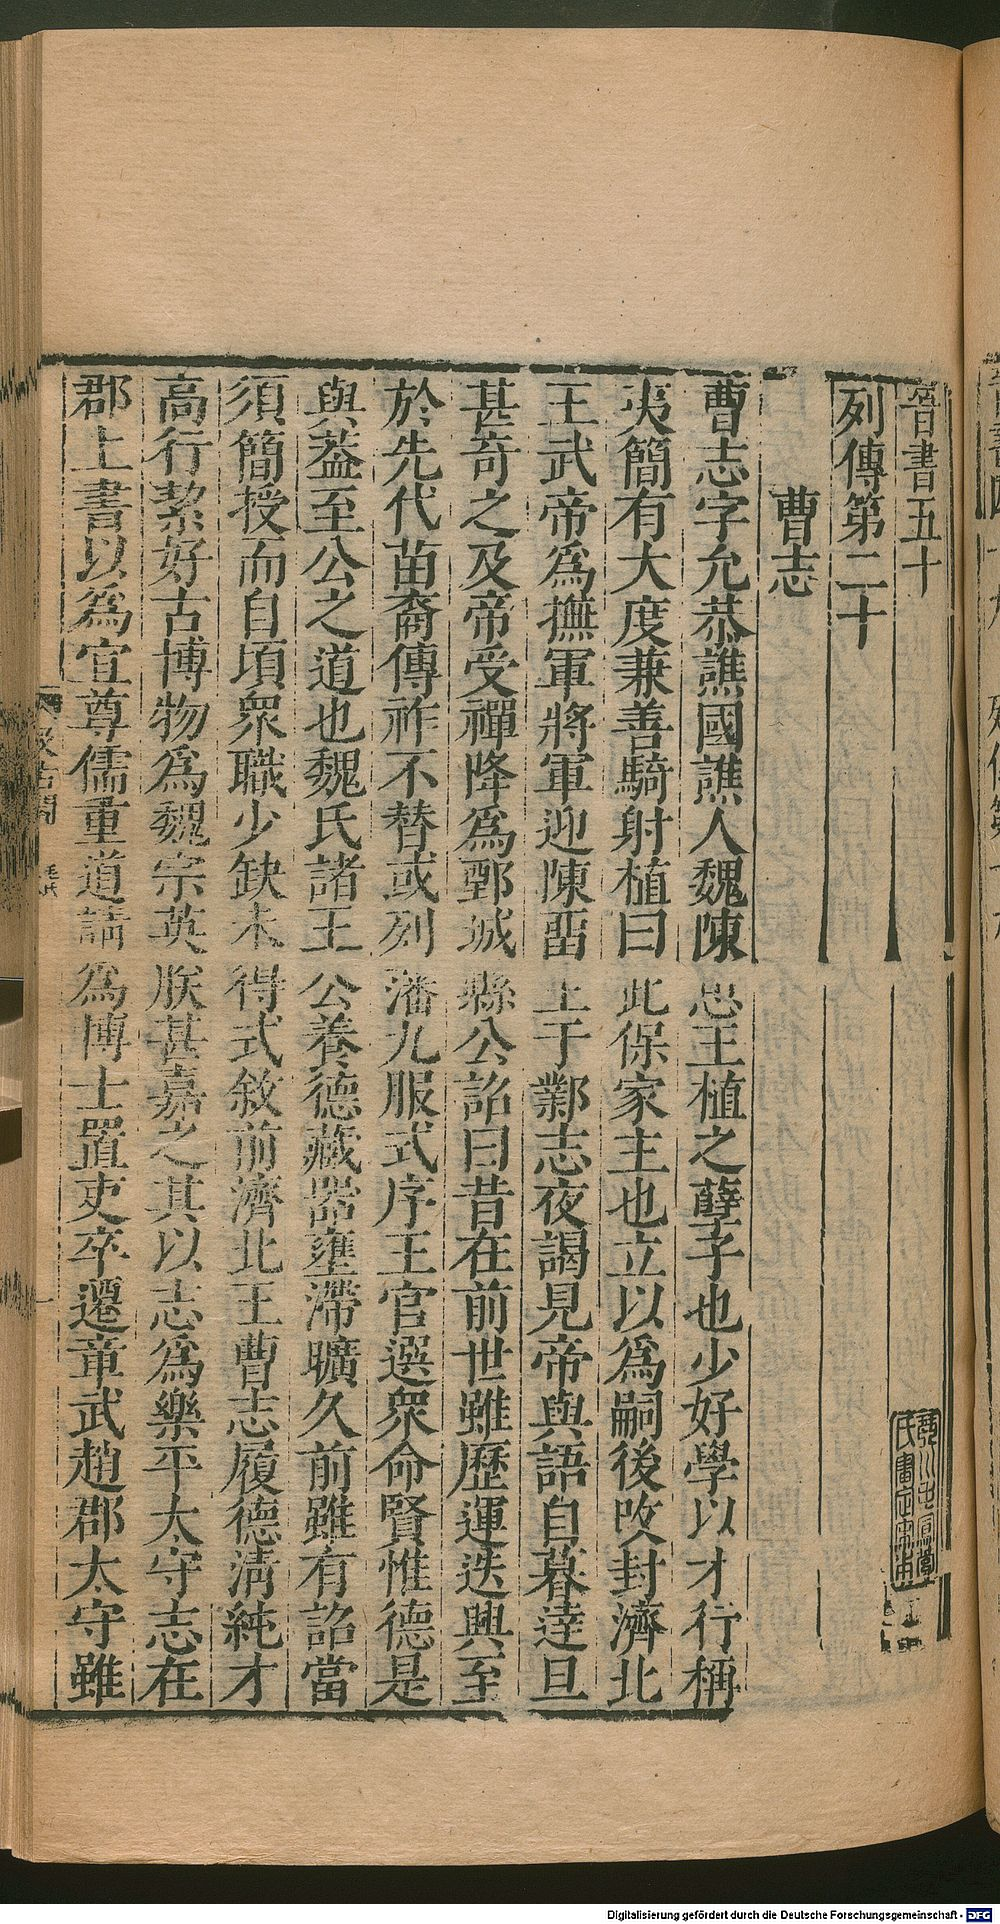 晉書五十
列傳第二十
曹志
曹志字允恭譙國譙人魏陳思王植之孽子也少好學以才行稱
夷簡有大度兼善騎射植曰此保家主也立以為嗣後改封濟北
王武帝為撫軍將軍迎陳畱王于鄴志夜謁見帝與語自暮達旦
甚奇之及帝受禪降為鄄城縣公詔曰昔在前世雖歷運迭興至
於先代苗裔傳祚不替或列藩九服式序王官選眾命賢惟德是
與葢至公之道也魏氏諸王公養德藏器壅滯曠久前雖有詔當
須簡授而自頃眾職少缺未得式敘前濟北王曹志履德清純才
高行絜好古博物為魏宗英朕甚嘉之其以志為樂平太守志在
郡上書以為宜尊儒重道請為博士置吏卒遷章武趙郡太守雖
汲古閣
毛氏
Digitalisierung gefördert durch die Deutsche Forschungsgemeinschaft - DFG